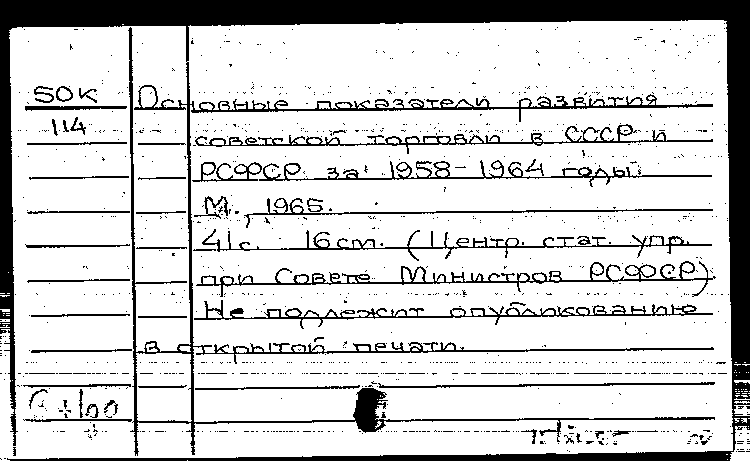 50К Основные показатели развития
114 советской торговли в СССР и
РСФСР за 1958-1964 годы
М., 1965.
41с. 16см. (Центр. стат. упр.
при Совете Министров РСФСР)
Не подлежит опубликованию
в открытой печати.